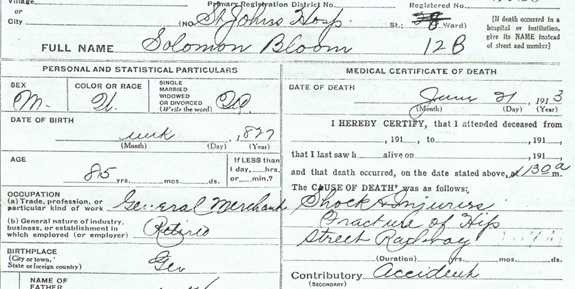 Village
or
City
Primary Registration District No.
Registered No.
(NO. St Johns Hosp St.; Ward)
[If death occured in a
hospital or institution,
give its NAME instead
of street and number]
FULL NAME Solomon Bloom 12B
PERSONAL AND STATISTICAL PARTICULARS
SEX
M
COLOR OR RACE
W
SINGLE
MARRIED
WIDOWED
OR DIVORCED
(Write the word)
DATE OF BIRTH
unk, 1827
(Month) (Day) (Year)
AGE
85 yrs. mos. ds.
If LESS than
1 day, hrs.
or min.?
OCCUPATION
(a) Trade, profession, or
particular kind of work General Merchant
(b) General nature of industry,
business, or establishment in
which employed (or employer) Retired
BIRTHPLACE
(City or town,
State or foreign country) Ger
NAME OF
FATHER
MEDICAL CERTIFICATE OF DEATH
DATE OF DEATH
June 21, 1913
(Month) (Day) (Year)
I HEREBY CERTIFY, that I attended deceased from
, 191 , to , 191
that I last saw h alive on , 191
and that death occurred, on the date stated above, at 130 a m.
The CAUSE OF DEATH was as follows:
Shock & Injuries
Fracture of Hip
Street Railway
(Duration) yrs. mos. ds.
Contributory Accident
(SECONDARY)